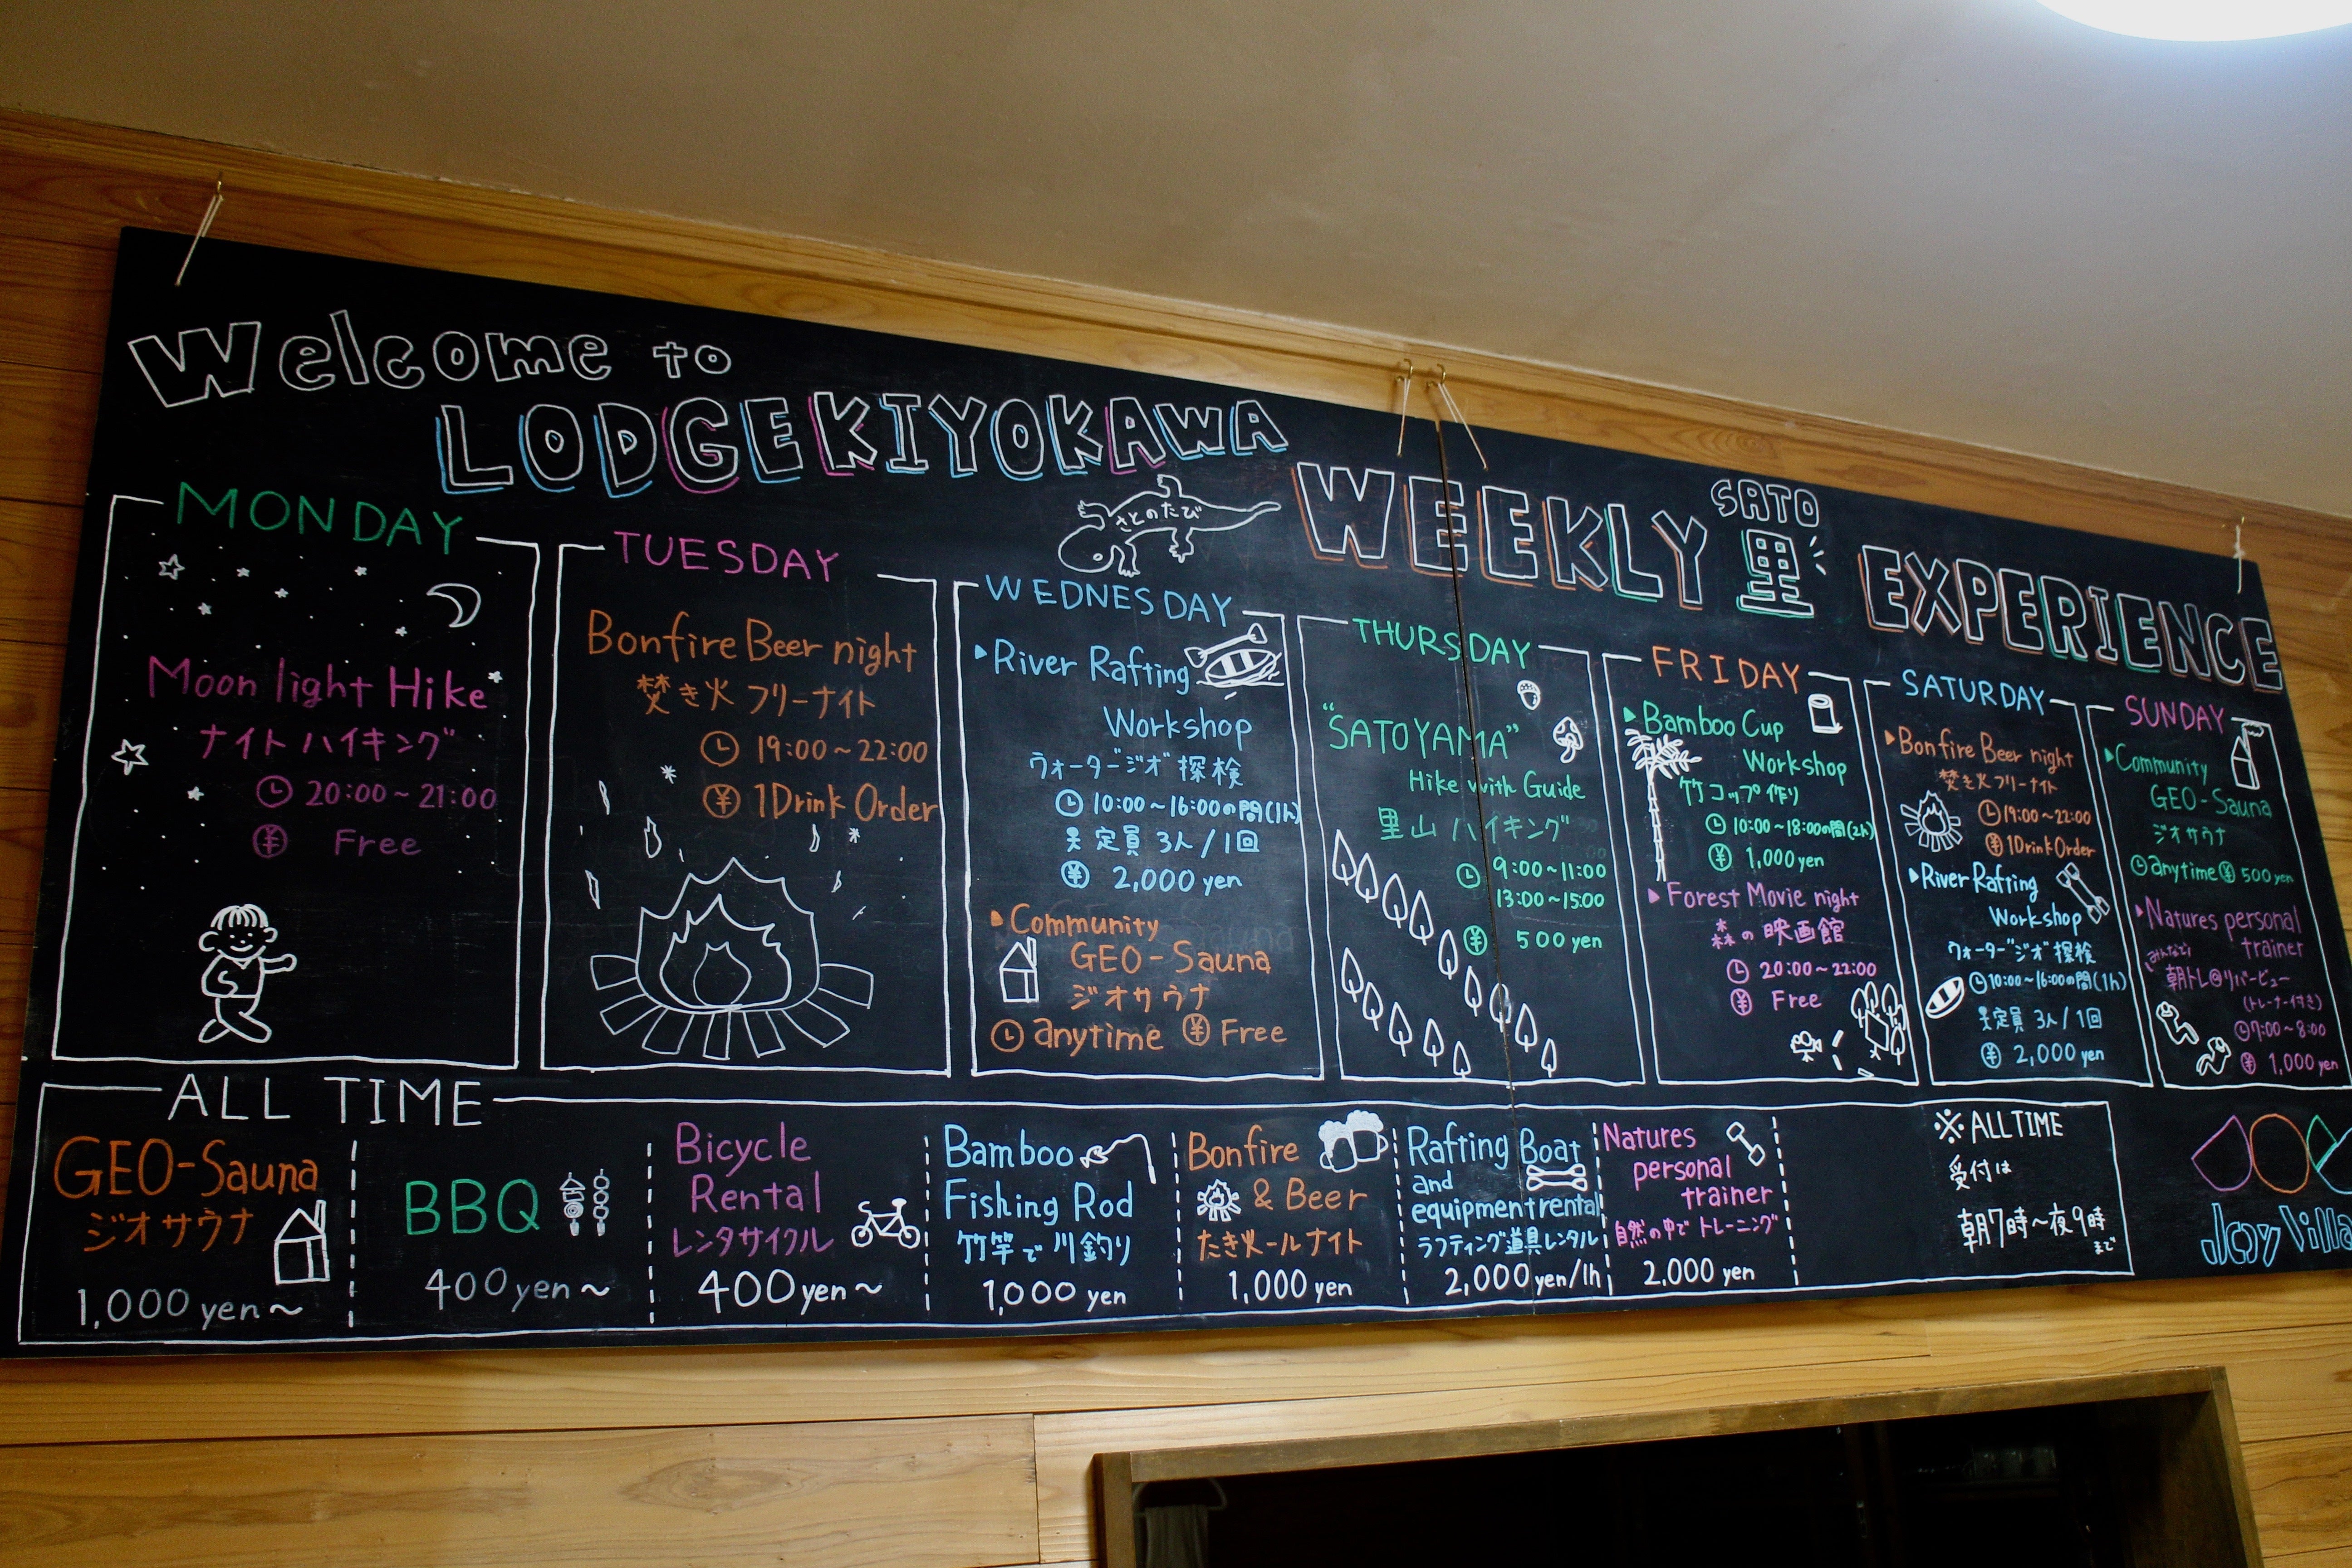 Welcome to
LODGE KIYOKAWA
さとのたび
WEEKLY
SATO
里
EXPERIENCE
MONDAY
Moon light Hike
ナイトハイキング
20:00~21:00
¥ Free
TUESDAY
Bonfire Beer night
焚き火フリーナイト
19:00~22:00
¥ 1Drink Order
WEDNESDAY
River Rafting
Workshop
ウォータージオ探検
10:00~16:00の間(1h)
定員 3人/1回
¥ 2,000 yen
Community
GEO-Sauna
ジオサウナ
anytime ¥ Free
THURSDAY
"SATOYAMA"
Hike with Guide
里山ハイキング
9:00~11:00
13:00~15:00
¥ 500 yen
FRIDAY
Bamboo Cup
Workshop
竹コップ作り
10:00~18:00の間(2h)
¥ 1,000 yen
Forest Movie night
森の映画館
20:00~22:00
¥ Free
SATURDAY
Bonfire Beer night
焚き火フリーナイト
19:00~22:00
¥ 1Drink Order
River Rafting
Workshop
ウォータージオ探検
10:00~16:00の間(1h)
定員 3人/1回
¥ 2,000 yen
SUNDAY
Community
GEO-Sauna
ジオサウナ
anytime ¥ 500 yen
Natures personal
trainer
みんなで
朝トレ@リバービュー
(トレーナー付き)
7:00~8:00
¥ 1,000 yen
ALL TIME
GEO-Sauna
ジオサウナ
1,000 yen~
BBQ
400 yen~
Bicycle
Rental
レンタサイクル
400 yen~
Bamboo
Fishing Rod
竹竿で川釣り
1,000 yen
Bonfire
& Beer
たき火ールナイト
1,000 yen
Rafting Boat
and
equipment rental
ラフティング道具レンタル
2,000 yen/1h
Natures
personal
trainer
自然の中でトレーニング
2,000 yen
※ALL TIME
受付は
朝7時~夜9時
まで
Joy Villa